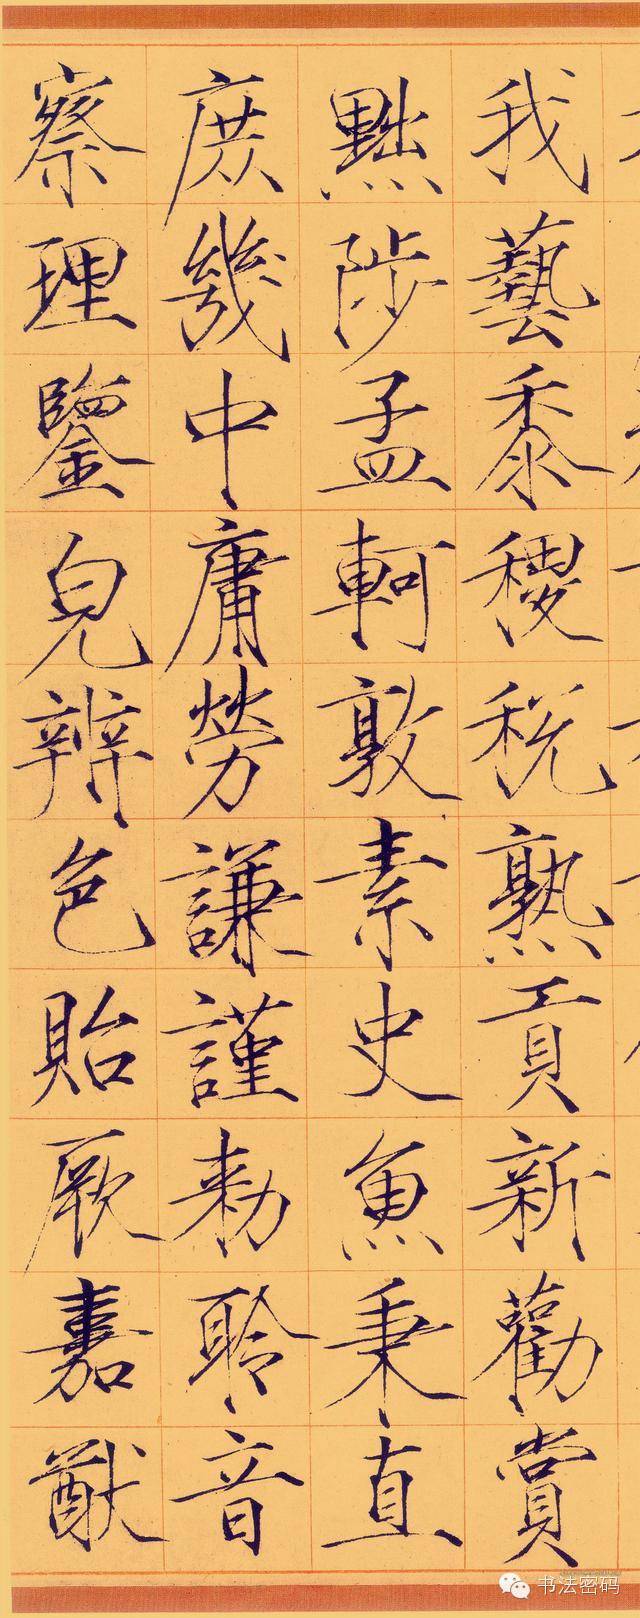 我藝黍稷稅熟貢新勸賞
黜陟孟軻敦素史魚秉直
庶幾中庸勞謙謹勅聆音
察理鑒皃辨色貽厥嘉猷
书法密码